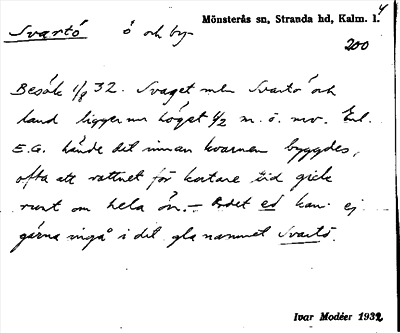 Svartö ö och by Mönsterås sn, Stranda hd, Kalm. l. 4
200
Besök 1/8 32. Svaget mln Svartö och
land ligger nu högst 1/2 m. ö. mv. Enl.
E.G. hände det innan kvarnen byggdes,
ofta att vattnet för kortare tid gick
runt om hela ön. – Ordet ed kan ej
gärna ingå i det gla namnet Svartö.
Ivar Modéer 1932